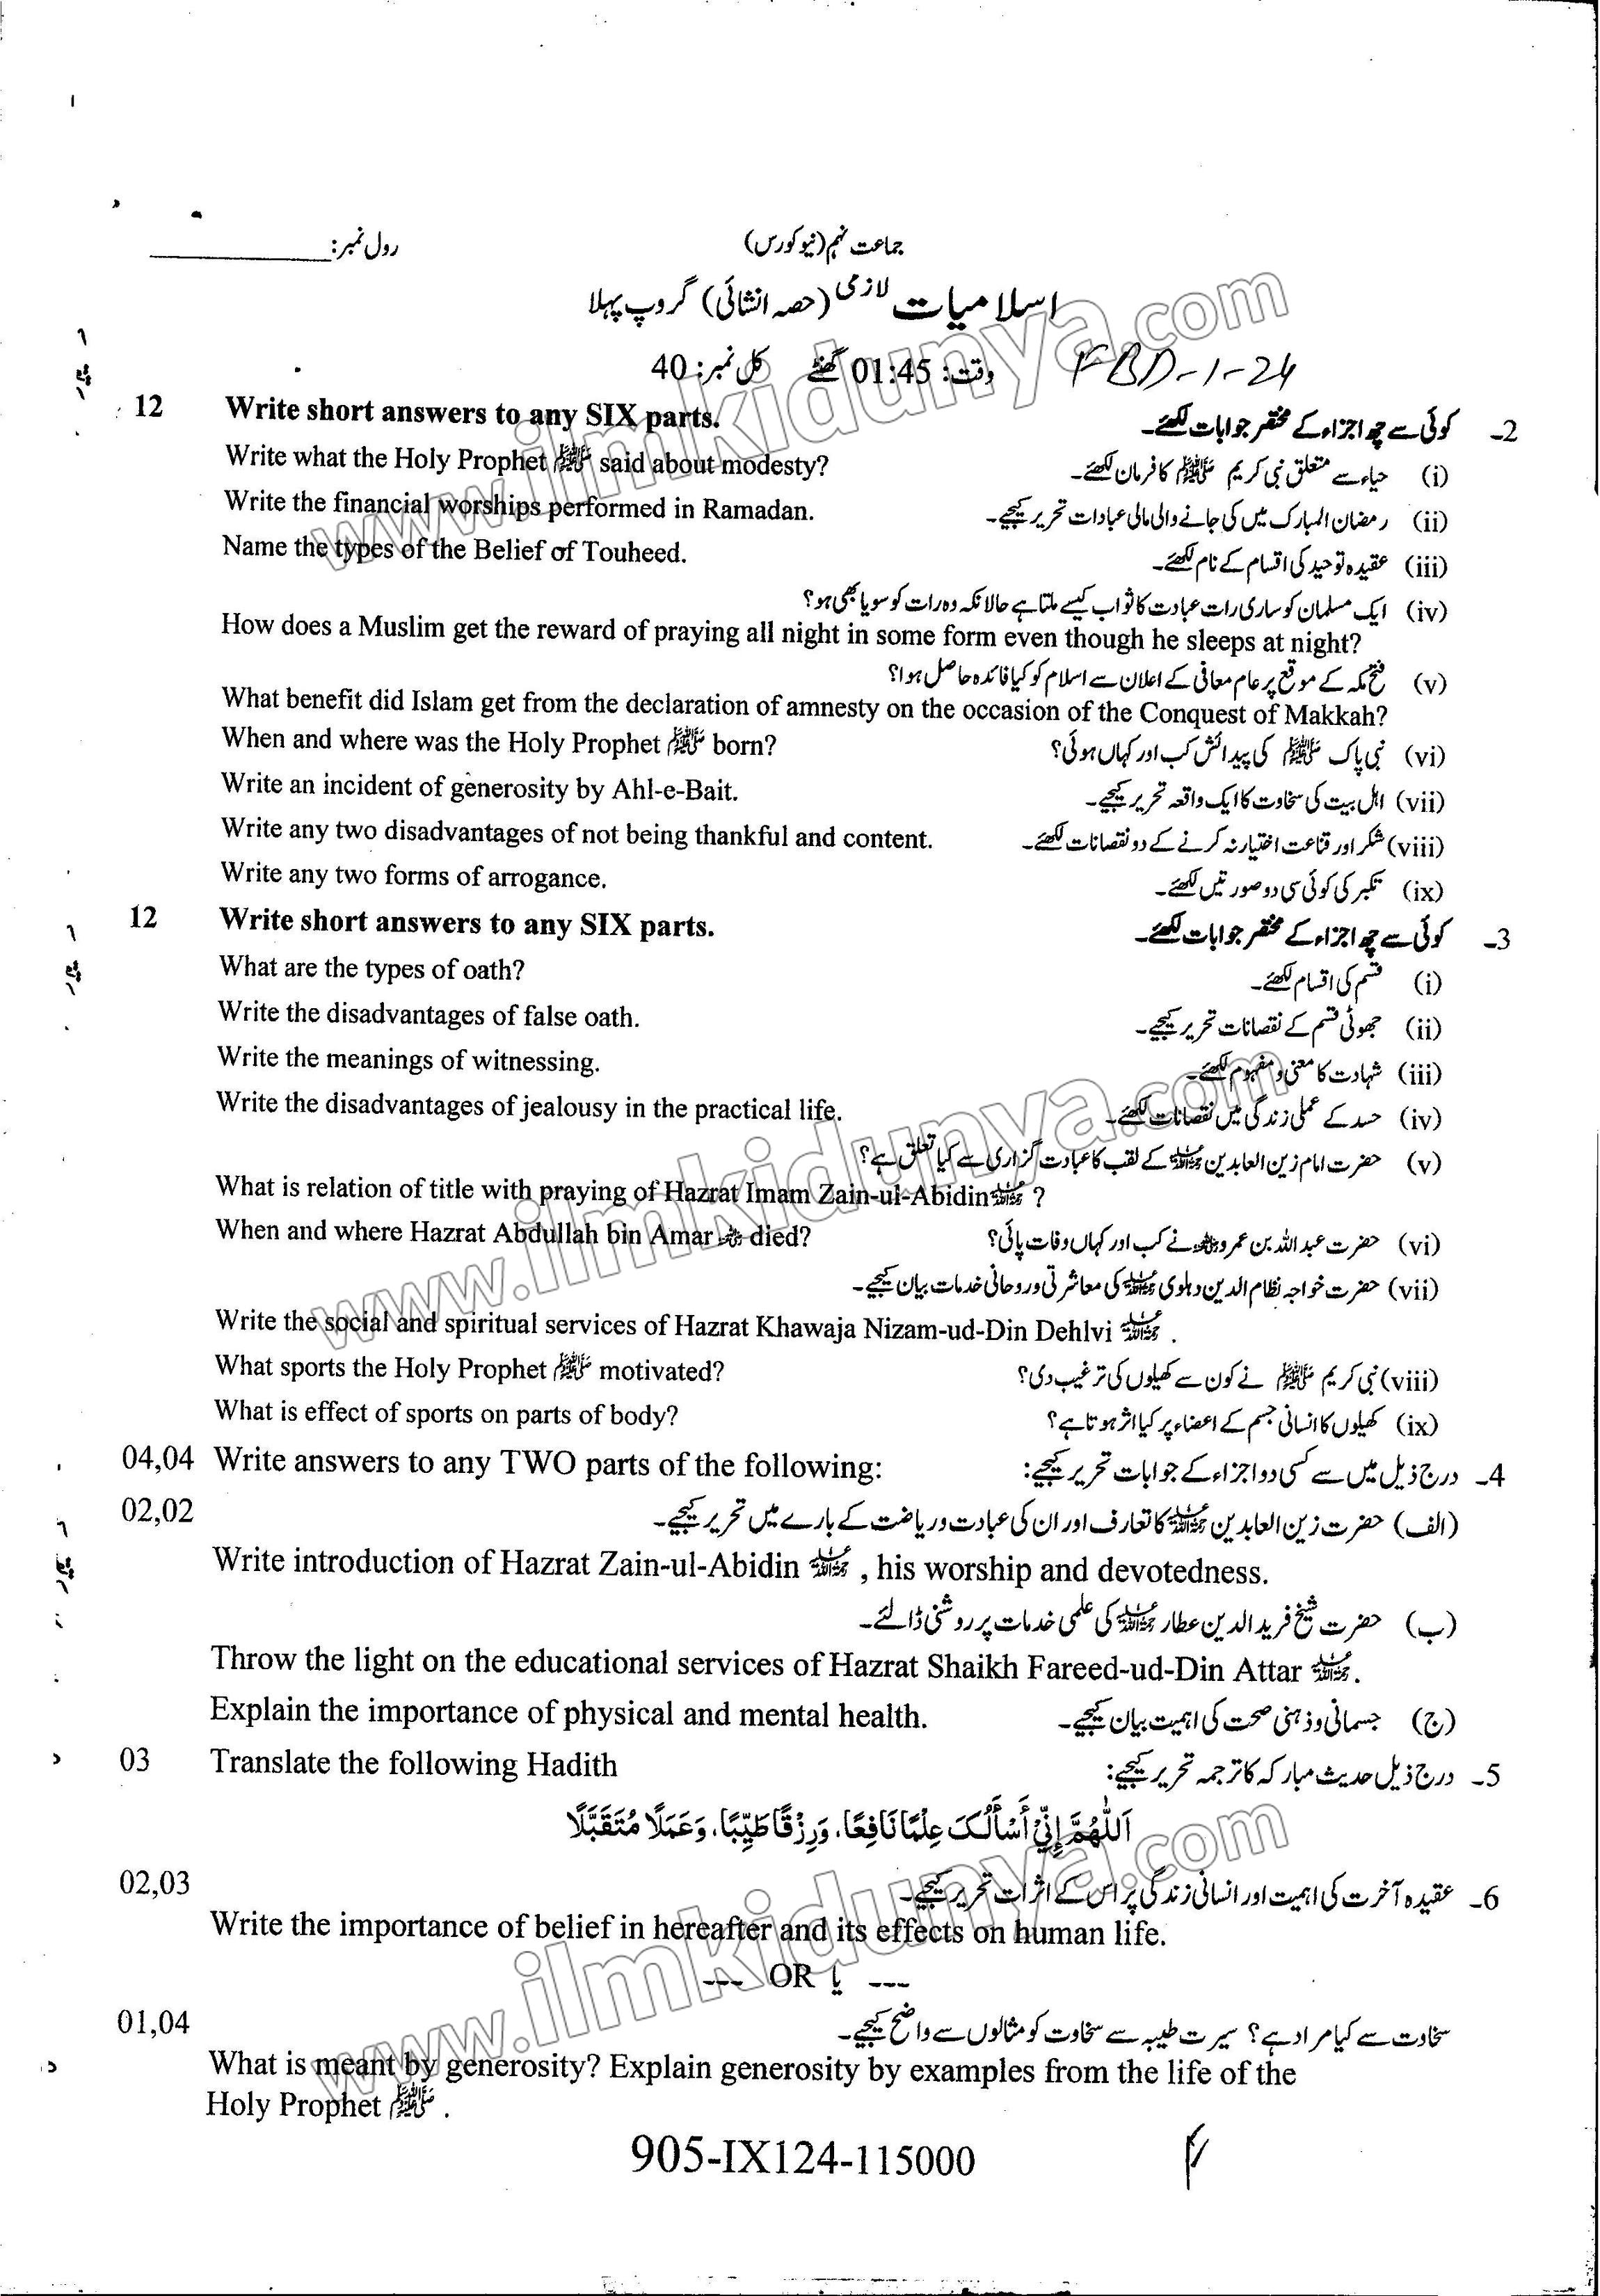 جماعت نہم (نیو کورس)
رول نمبر:
اسلامیات لازمی (حصہ انشائی) گروپ پہلا
وقت: 01:45 گھنٹے کل نمبر: 40
FBD-1-24
2۔ کوئی سے چھ اجزاء کے مختصر جوابات لکھئے۔
12 Write short answers to any SIX parts.
(i) حیاء سے متعلق نبی کریم ﷺ کا فرمان لکھئے۔
Write what the Holy Prophet ﷺ said about modesty?
(ii) رمضان المبارک میں کی جانے والی مالی عبادات تحریر کیجیے۔
Write the financial worships performed in Ramadan.
(iii) عقیدہ توحید کی اقسام کے نام لکھئے۔
Name the types of the Belief of Touheed.
(iv) ایک مسلمان کو ساری رات عبادت کا ثواب کیسے ملتا ہے حالانکہ وہ رات کو سویا بھی ہو؟
How does a Muslim get the reward of praying all night in some form even though he sleeps at night?
(v) فتح مکہ کے موقع پر عام معافی کے اعلان سے اسلام کو کیا فائدہ حاصل ہوا؟
What benefit did Islam get from the declaration of amnesty on the occasion of the Conquest of Makkah?
(vi) نبی پاک ﷺ کی پیدائش کب اور کہاں ہوئی؟
When and where was the Holy Prophet ﷺ born?
(vii) اہل بیت کی سخاوت کا ایک واقعہ تحریر کیجیے۔
Write an incident of generosity by Ahl-e-Bait.
(viii) شکر اور قناعت اختیار نہ کرنے کے دو نقصانات لکھئے۔
Write any two disadvantages of not being thankful and content.
(ix) تکبر کی کوئی سی دو صورتیں لکھئے۔
Write any two forms of arrogance.
3۔ کوئی سے چھ اجزاء کے مختصر جوابات لکھئے۔
12 Write short answers to any SIX parts.
(i) قسم کی اقسام لکھئے۔
What are the types of oath?
(ii) جھوٹی قسم کے نقصانات تحریر کیجیے۔
Write the disadvantages of false oath.
(iii) شہادت کا معنی و مفہوم لکھئے۔
Write the meanings of witnessing.
(iv) حسد کے عملی زندگی میں نقصانات لکھئے۔
Write the disadvantages of jealousy in the practical life.
(v) حضرت امام زین العابدین کے لقب کا عبادت گزاری سے کیا تعلق ہے؟
What is relation of title with praying of Hazrat Imam Zain-ul-Abidin ?
(vi) حضرت عبداللہ بن عمرو نے کب اور کہاں وفات پائی؟
When and where Hazrat Abdullah bin Amar died?
(vii) حضرت خواجہ نظام الدین دہلوی کی معاشرتی و روحانی خدمات بیان کیجیے۔
Write the social and spiritual services of Hazrat Khawaja Nizam-ud-Din Dehlvi .
(viii) نبی کریم ﷺ نے کون سے کھیلوں کی ترغیب دی؟
What sports the Holy Prophet ﷺ motivated?
(ix) کھیلوں کا انسانی جسم کے اعضاء پر کیا اثر ہوتا ہے؟
What is effect of sports on parts of body?
4۔ درج ذیل میں سے کسی دو اجزاء کے جوابات تحریر کیجیے:
04,04 Write answers to any TWO parts of the following:
02,02 (الف) حضرت زین العابدین کا تعارف اور ان کی عبادت و ریاضت کے بارے میں تحریر کیجیے۔
Write introduction of Hazrat Zain-ul-Abidin , his worship and devotedness.
(ب) حضرت شیخ فرید الدین عطار کی علمی خدمات پر روشنی ڈالئے۔
Throw the light on the educational services of Hazrat Shaikh Fareed-ud-Din Attar .
(ج) جسمانی و ذہنی صحت کی اہمیت بیان کیجیے۔
Explain the importance of physical and mental health.
5۔ درج ذیل حدیث مبارکہ کا ترجمہ تحریر کیجیے:
03 Translate the following Hadith
اَللّٰهُمَّ إِنِّيْ أَسْأَلُكَ عِلْمًا نَافِعًا، وَرِزْقًا طَيِّبًا، وَعَمَلًا مُتَقَبَّلًا
6۔ عقیدہ آخرت کی اہمیت اور انسانی زندگی پر اس کے اثرات تحریر کیجیے۔
02,03
Write the importance of belief in hereafter and its effects on human life.
--- OR یا ---
سخاوت سے کیا مراد ہے؟ سیرت طیبہ سے سخاوت کو مثالوں سے واضح کیجیے۔
01,04
What is meant by generosity? Explain generosity by examples from the life of the
Holy Prophet ﷺ .
905-IX124-115000
www.ilmkidunya.com
www.ilmkidunya.com
www.ilmkidunya.com